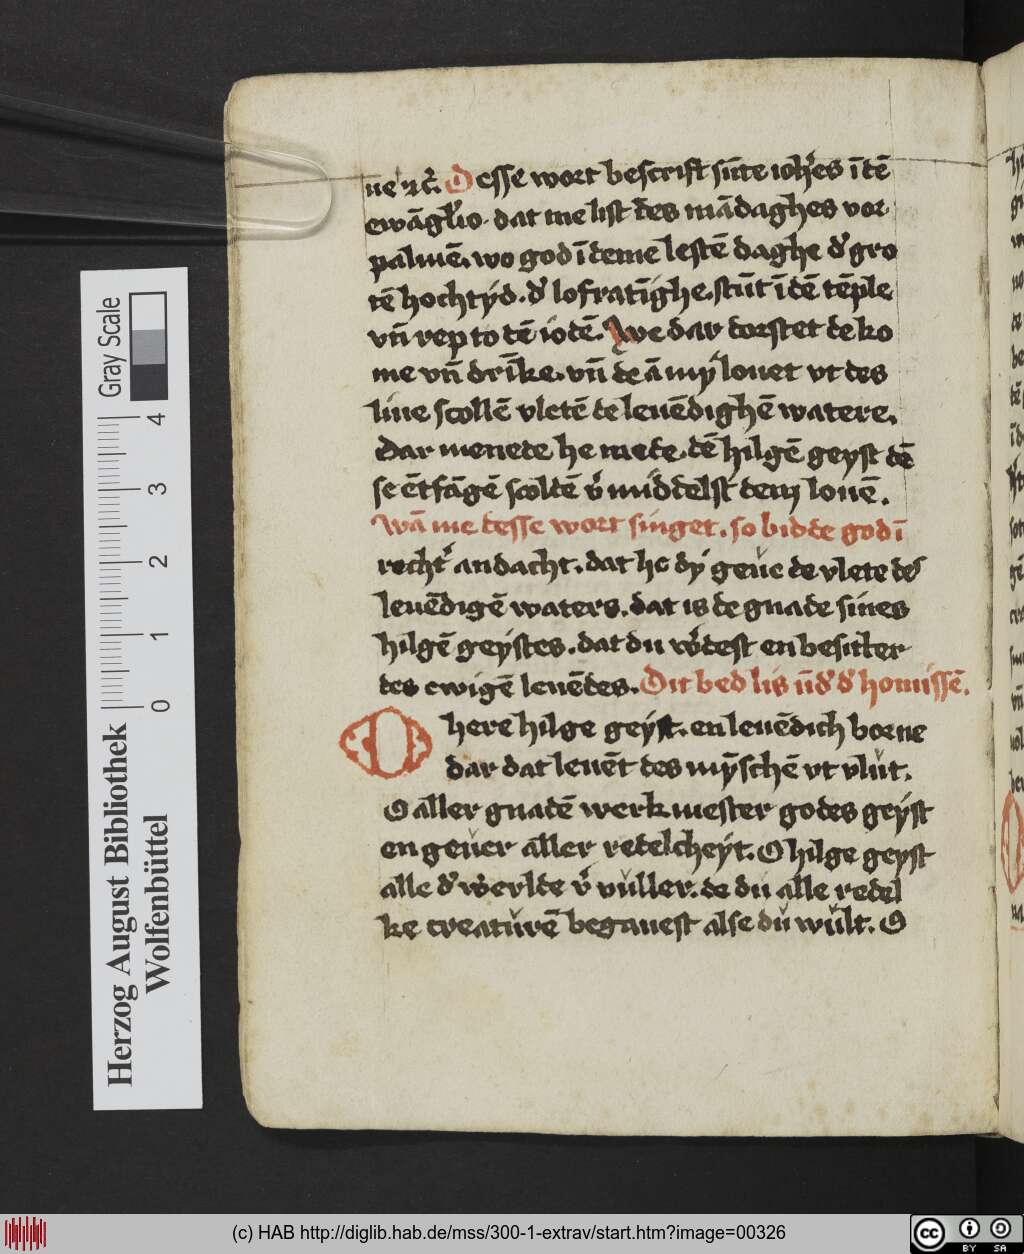 ue ⁊cͬ. Desse wort bescrift sūte ioh̄es ī dē
ewāgl̓io. dat me list des mādaghes vor
palmē. wo god ī deme lestē daghe d̓ gro
tē hochtyd. d̓ lofratīghe. stūt ī dē tēple
vn̄ rep to dē iodē. We dar dorstet de ko
me vn̄ drīke. vn̄ de ā my louet vt des
liue scollē vletē de leuēdighē watere.
Dar menede he mede. dē hilgē geyst dē
se ētfāgē scoldē v̓middelst dem louē.
Wā me desse wort singet. so bidde god ī
recht̓ andacht. dat he dy geue de vlete des
leuēdigē waters. dat is de gnade sines
hilgē geystes. dat du w̓dest en besitter
des ewigē leuēdes. Dit bed lis ūd̓ d̓ homissē.
O here hilge geyst. en leuēdich borne
dar dat leuēt des mȳschē vt vlut.
O aller gnadē werkmester godes geyst
en geuer aller redelcheyt. O hilge geyst
alle d̓ werlde v̓vuller. de du alle redel
ke creaturē begauest alse du wult. O
Gray Scale
4
3
2
1
0
Herzog August Bibliothek
Wolfenbüttel
(c) HAB http://diglib.hab.de/mss/300-1-extrav/start.htm?image=00326
cc
BY SA